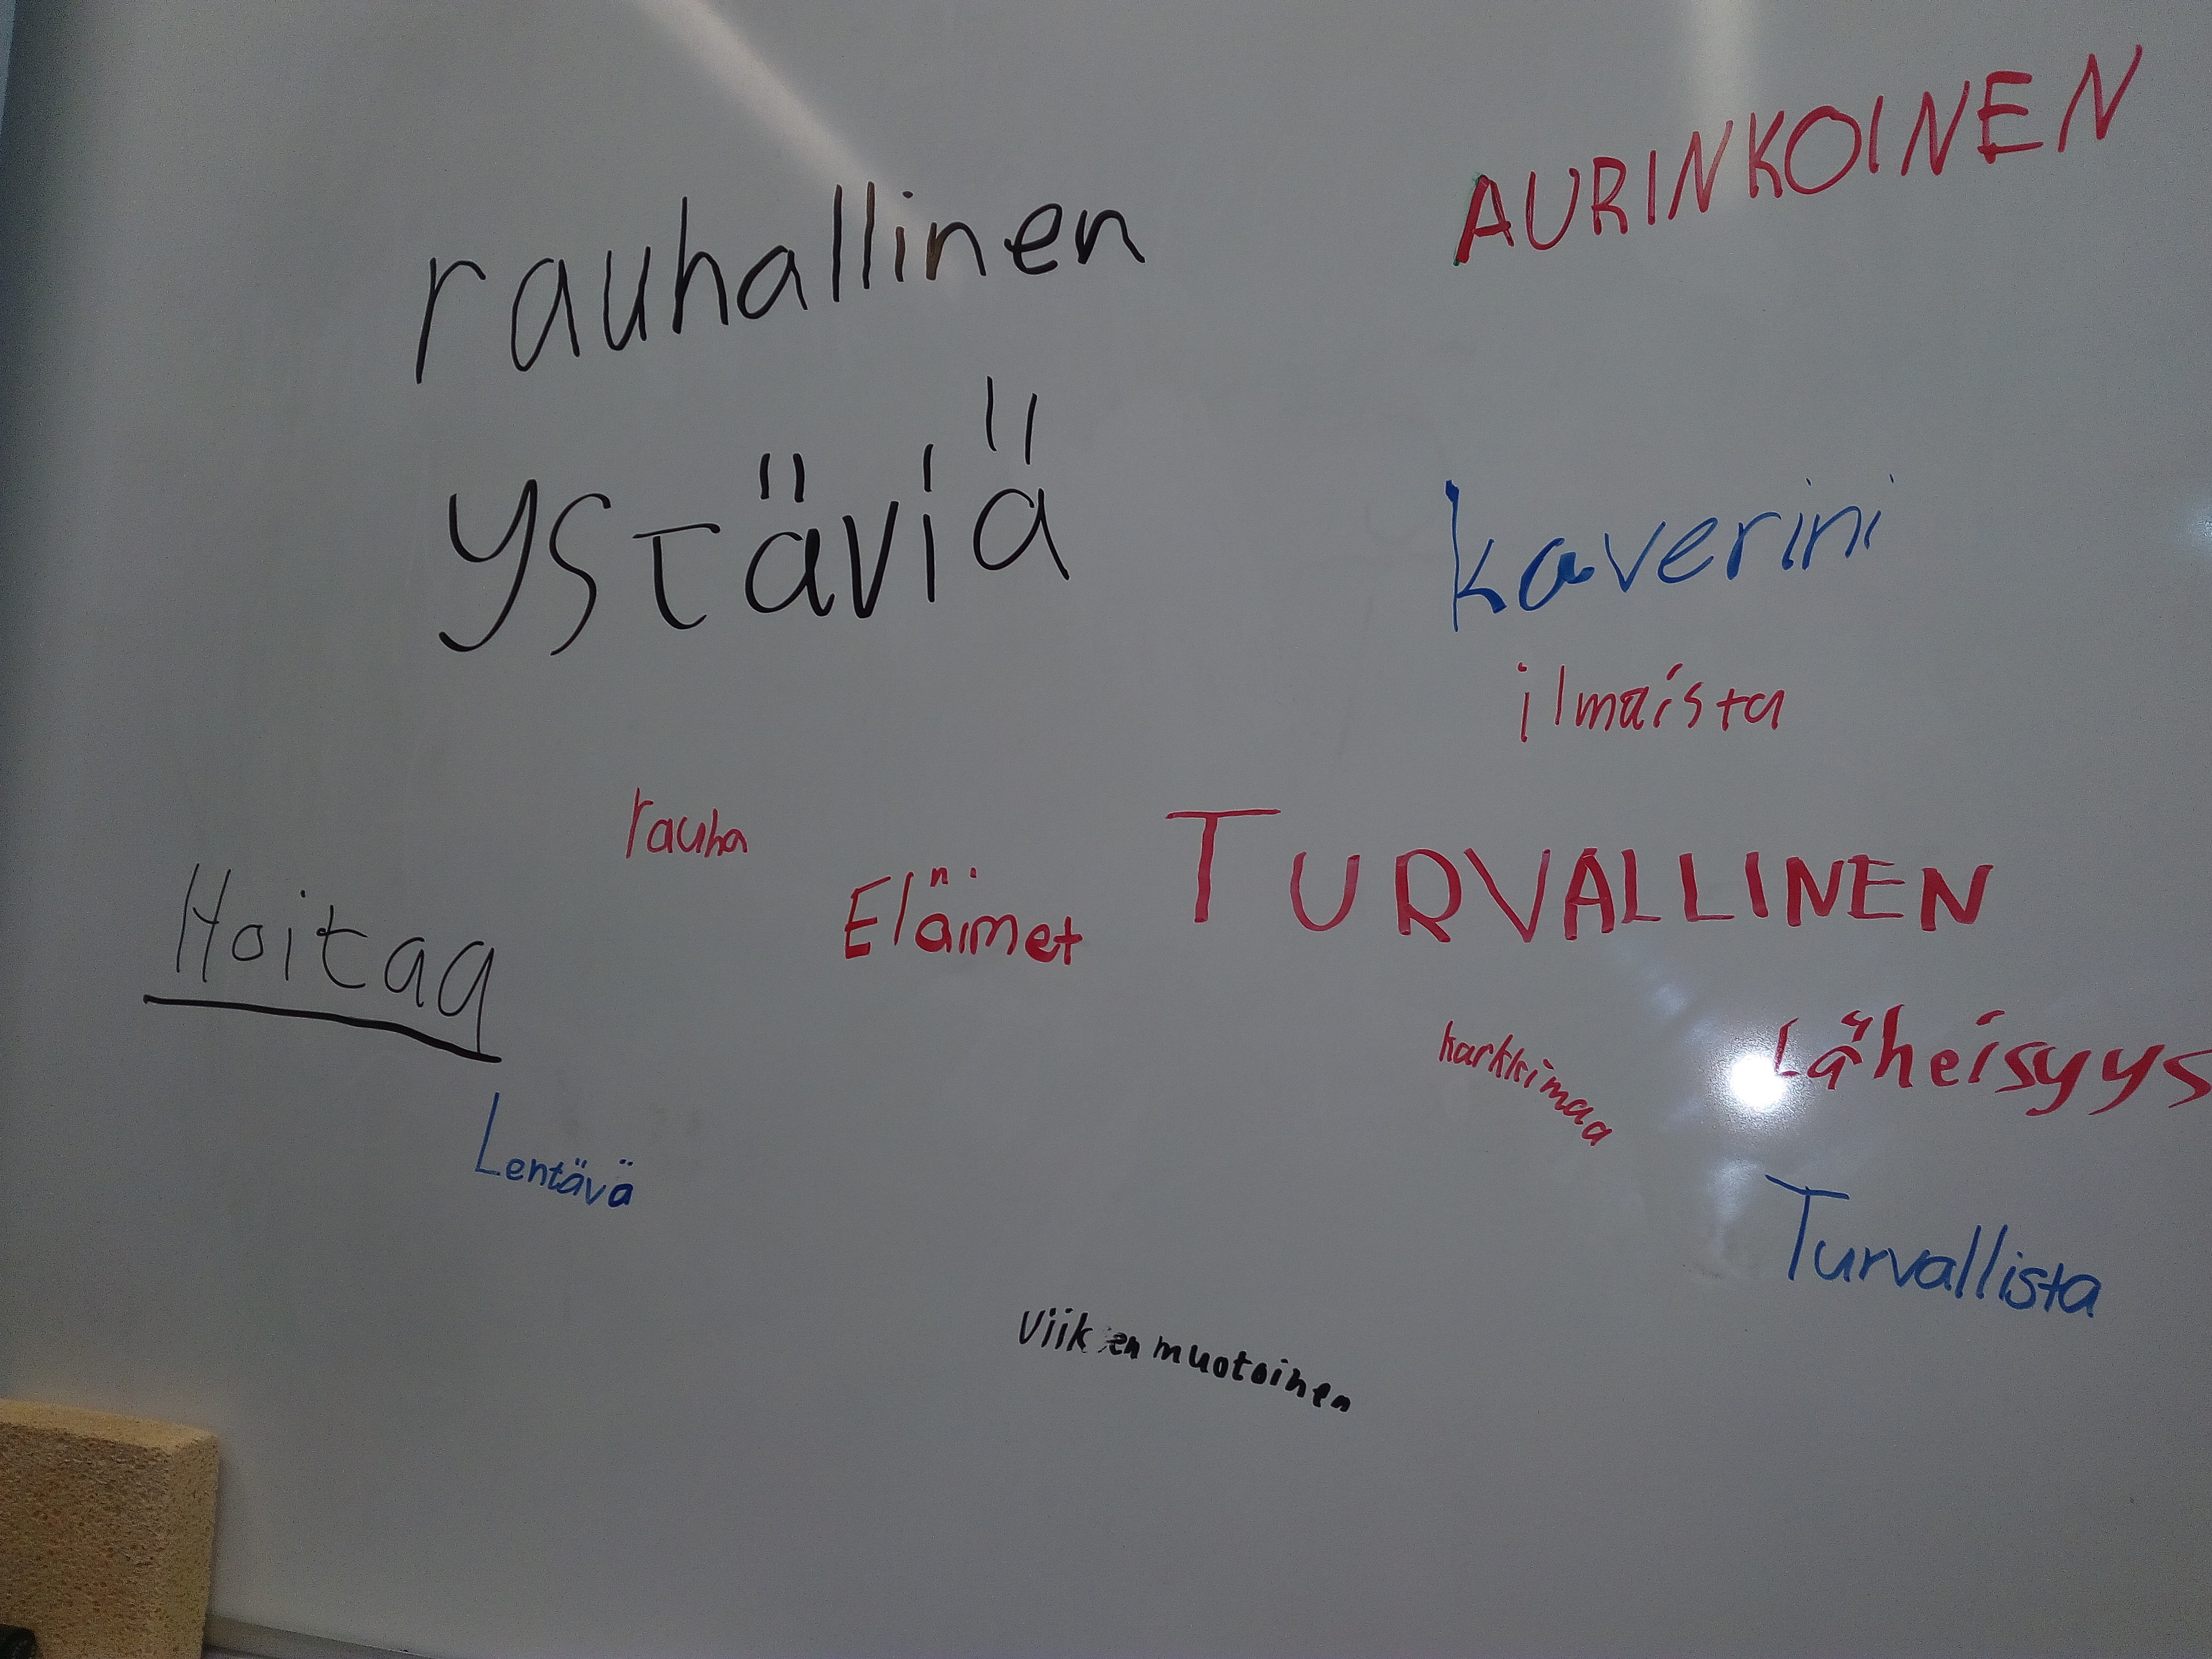 AURINKOINEN
rauhallinen
ystäviä
kaverini
ilmaista
rauha
Eläimet
TURVALLINEN
Hoitaa
karkkimaa
Läheisyys
Lentävä
Turvallista
muotoinen